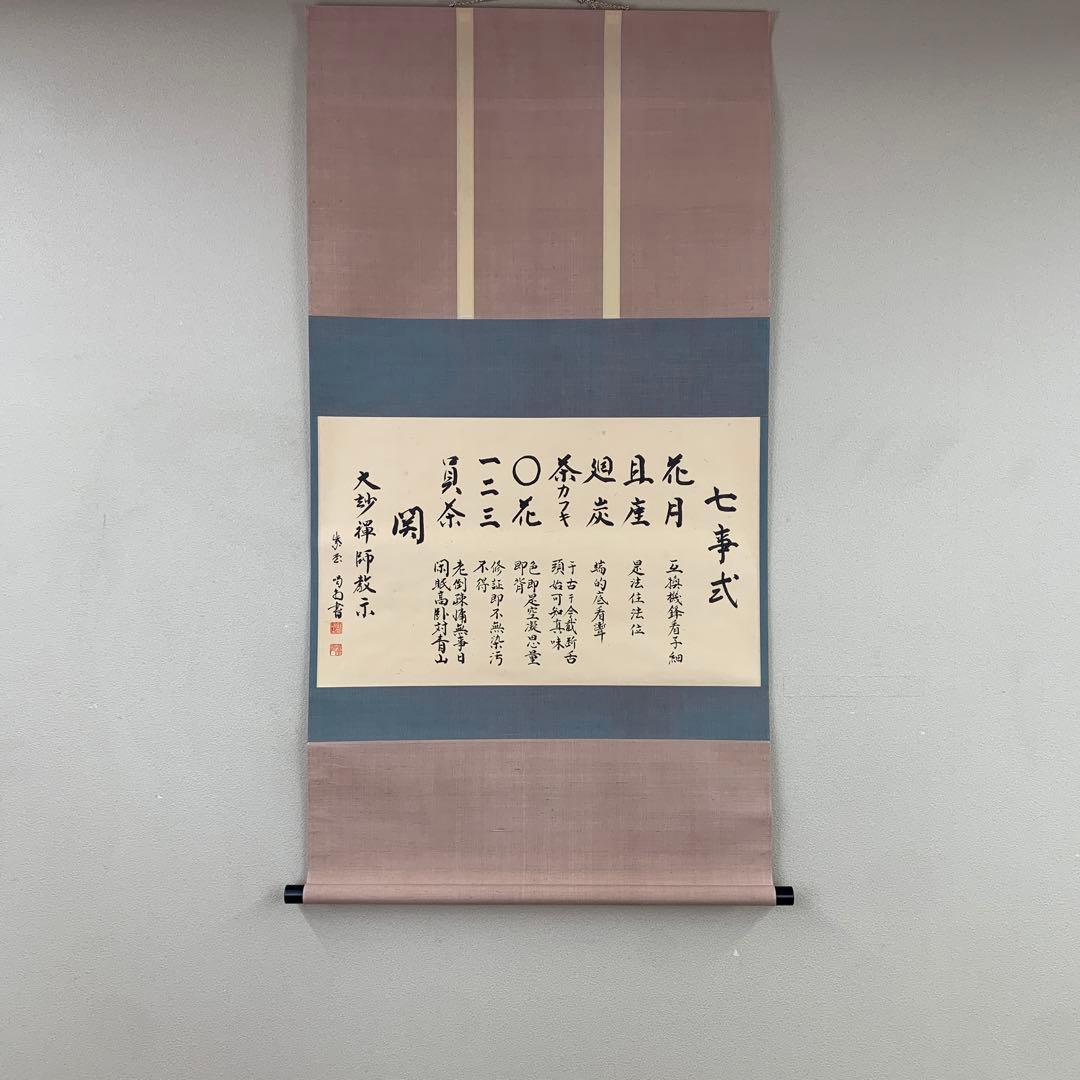 七事式
花月 互換機鋒看子細
且座 是法住法位
廻炭 端的底看聻
茶カフキ 于古于今截断舌
頭始可知真味
〇花 色即是空凝思量
即背
一二三 修証即不無染汚
不得
員茶 老倒疎慵無事日
閑眠高卧対青山
関
大玅禅師教示
書